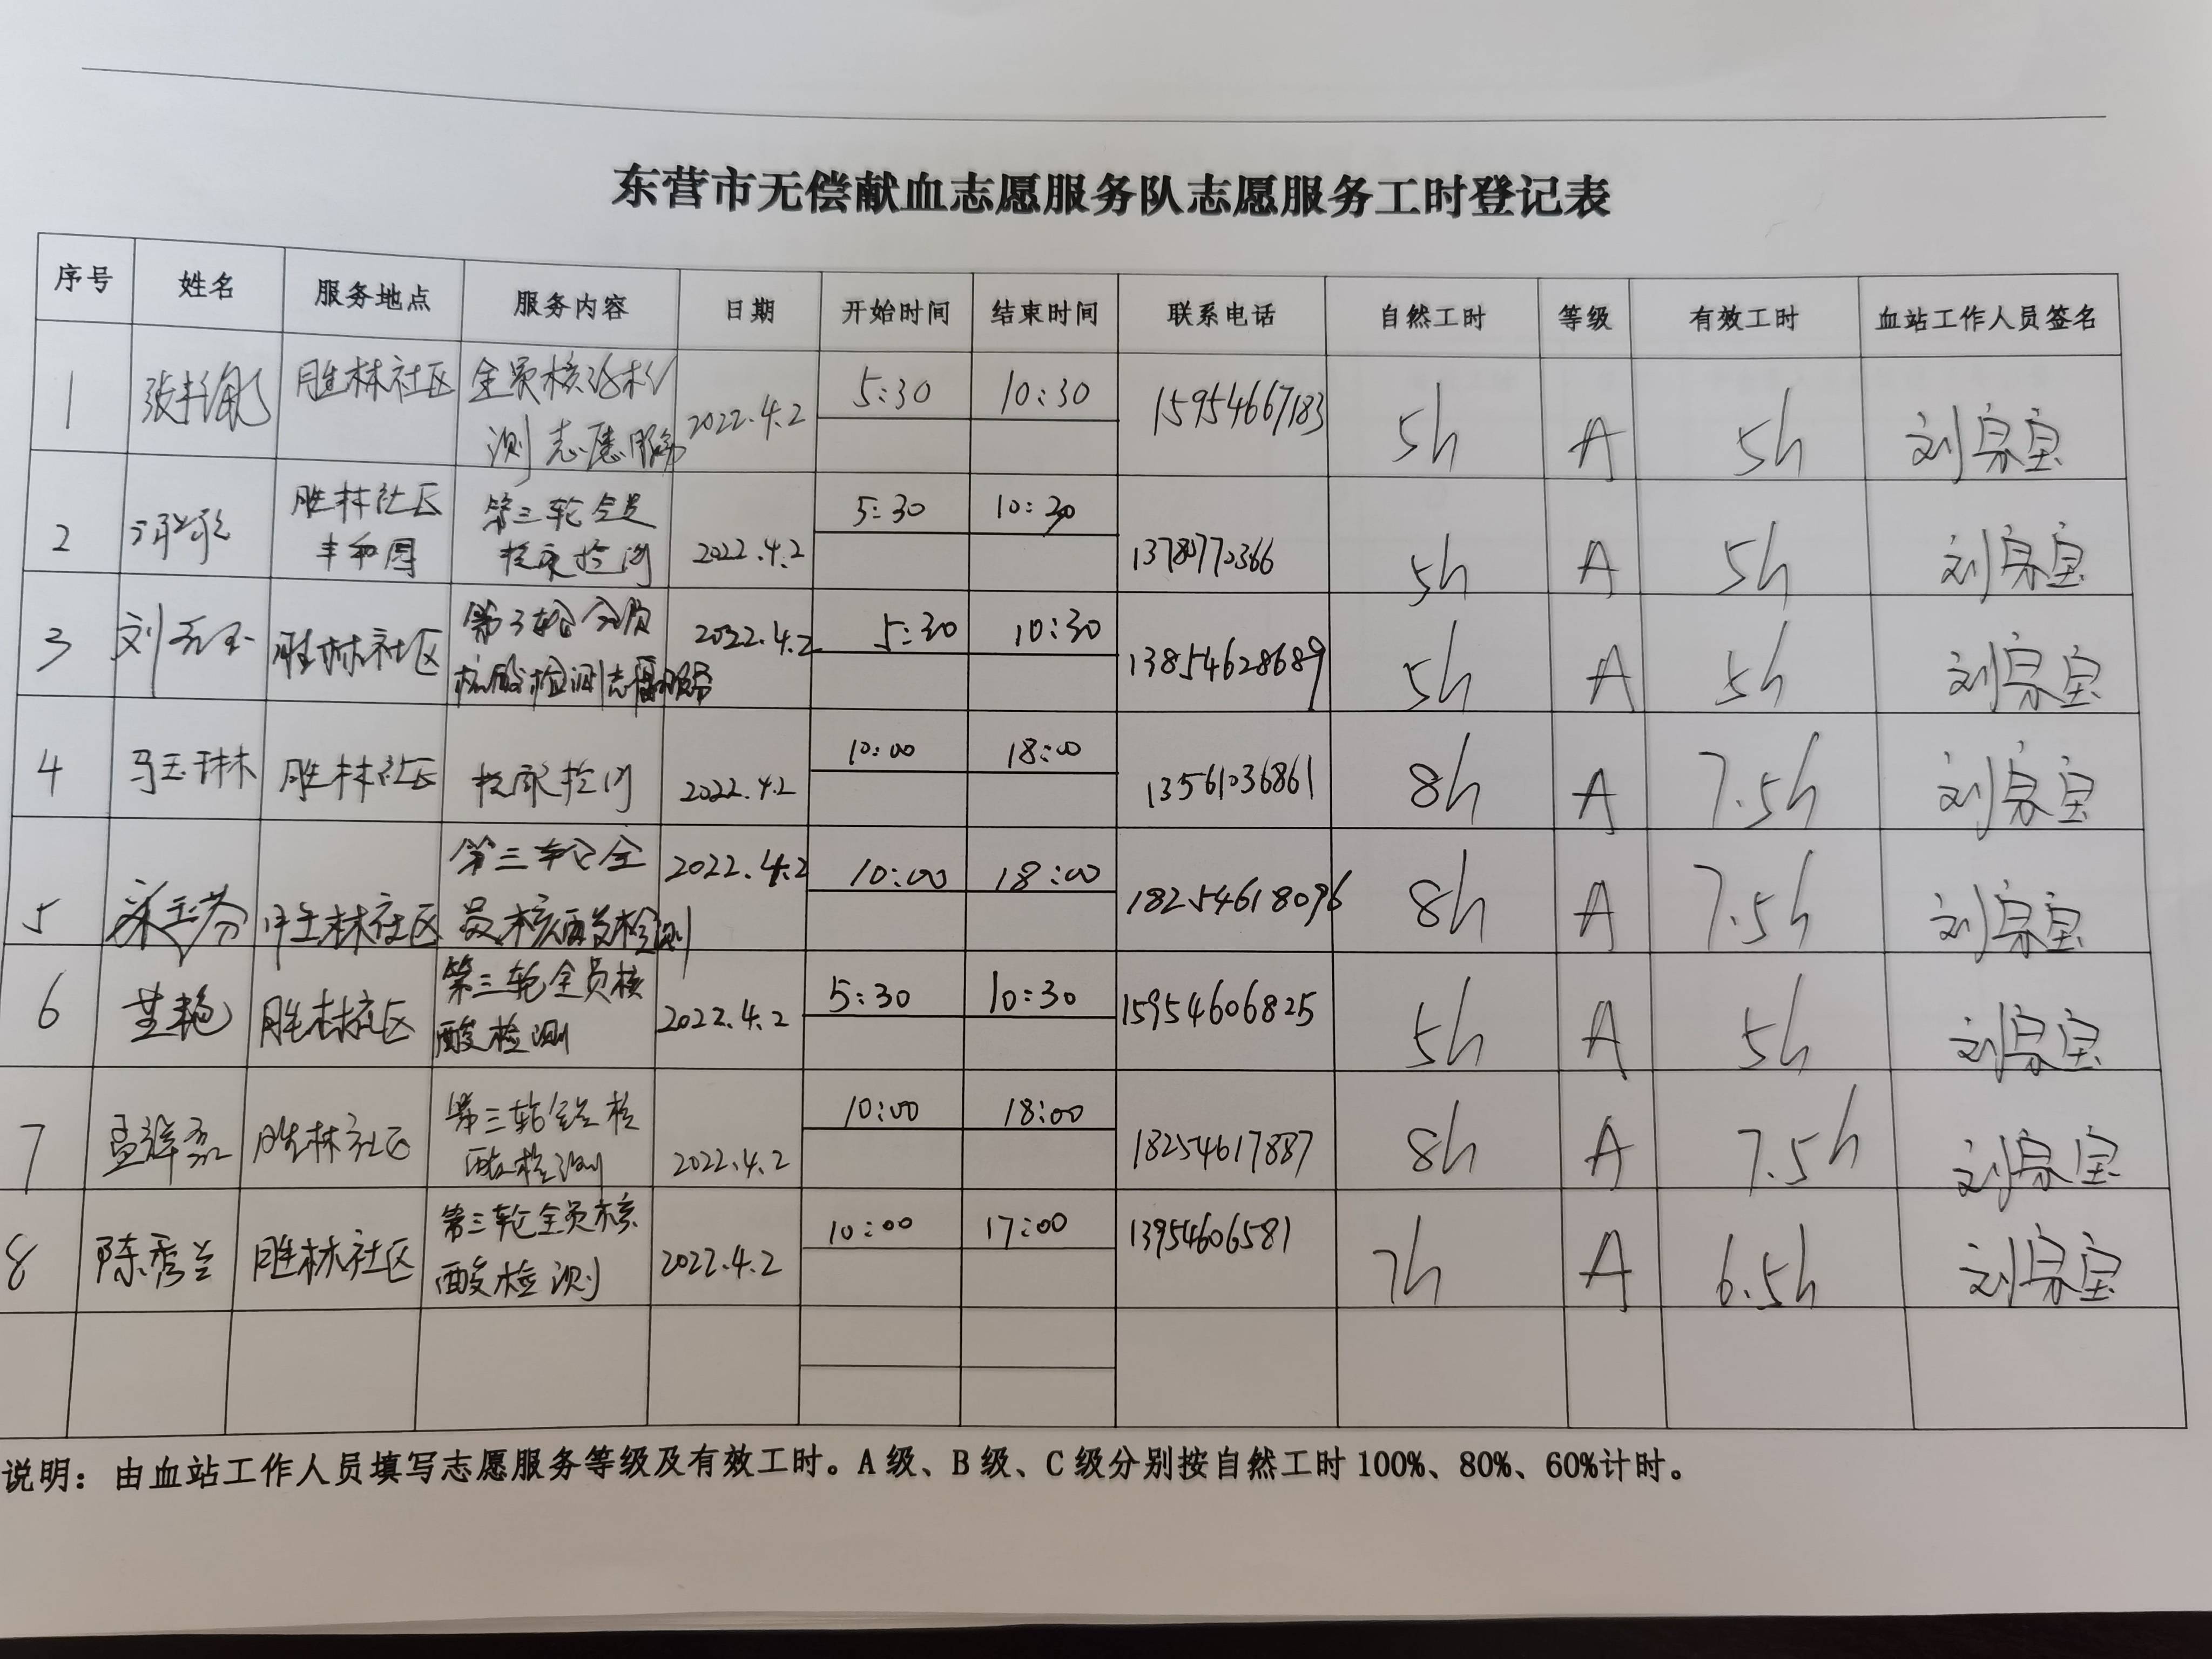 东营市无偿献血志愿服务队志愿服务工时登记表
序号 姓名 服务地点 服务内容 日期 开始时间 结束时间 联系电话 自然工时 等级 有效工时 血站工作人员签名
1 胜林社区 全员核酸检测志愿服务 2022.4.2 5:30 10:30 15954667183 5h A 5h 刘宗宝
2 胜林社区丰和园 第三轮全员核酸检测 2022.4.2 5:30 10:30 13780772366 5h A 5h 刘宗宝
3 胜林社区 第3轮全员核酸检测志愿服务 2022.4.2 5:30 10:30 13854628689 5h A 5h 刘宗宝
4 马玉琳 胜林社区 核酸检测 2022.4.2 10:00 18:00 13561036861 8h A 7.5h 刘宗宝
5 胜林社区 第三轮全员核酸检测 2022.4.2 10:00 18:00 18254618096 8h A 7.5h 刘宗宝
6 胜林社区 第三轮全员核酸检测 2022.4.2 5:30 10:30 15954606825 5h A 5h 刘宗宝
7 胜林社区 第三轮全员核酸检测 2022.4.2 10:00 18:00 18254617887 8h A 7.5h 刘宗宝
8 陈秀兰 胜林社区 第三轮全员核酸检测 2022.4.2 10:00 17:00 13954606581 7h A 6.5h 刘宗宝
说明：由血站工作人员填写志愿服务等级及有效工时。A级、B级、C级分别按自然工时100%、80%、60%计时。